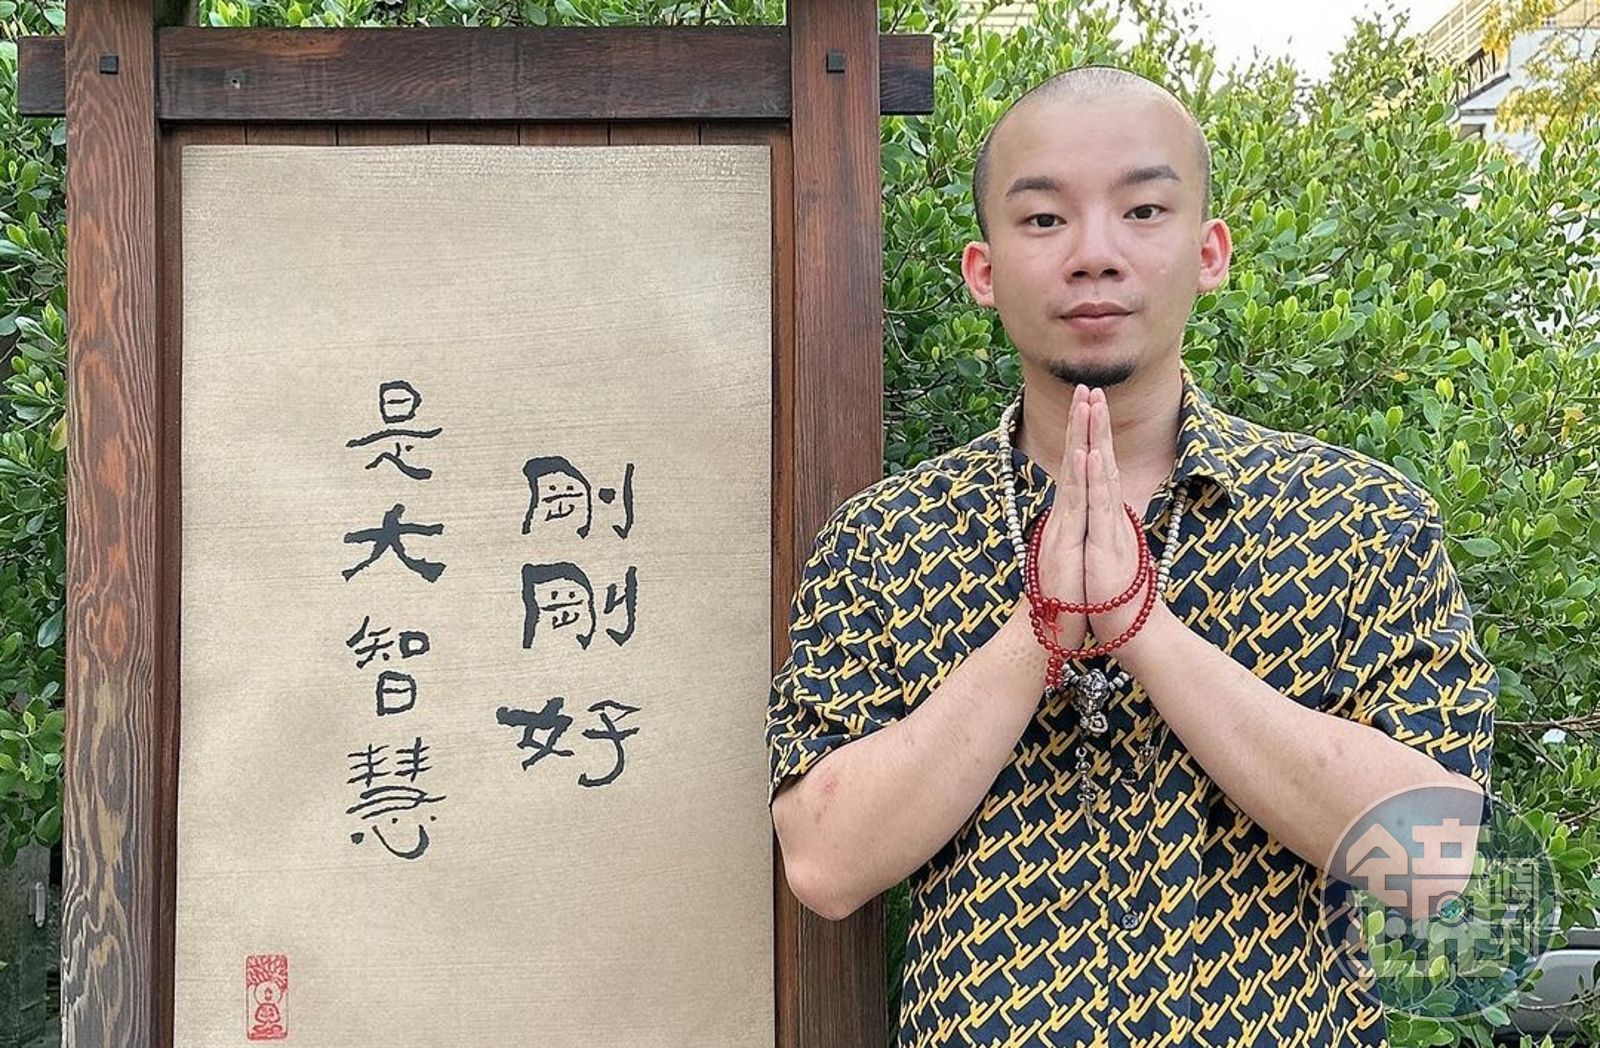 剛剛好
是大智慧
鏡週刊